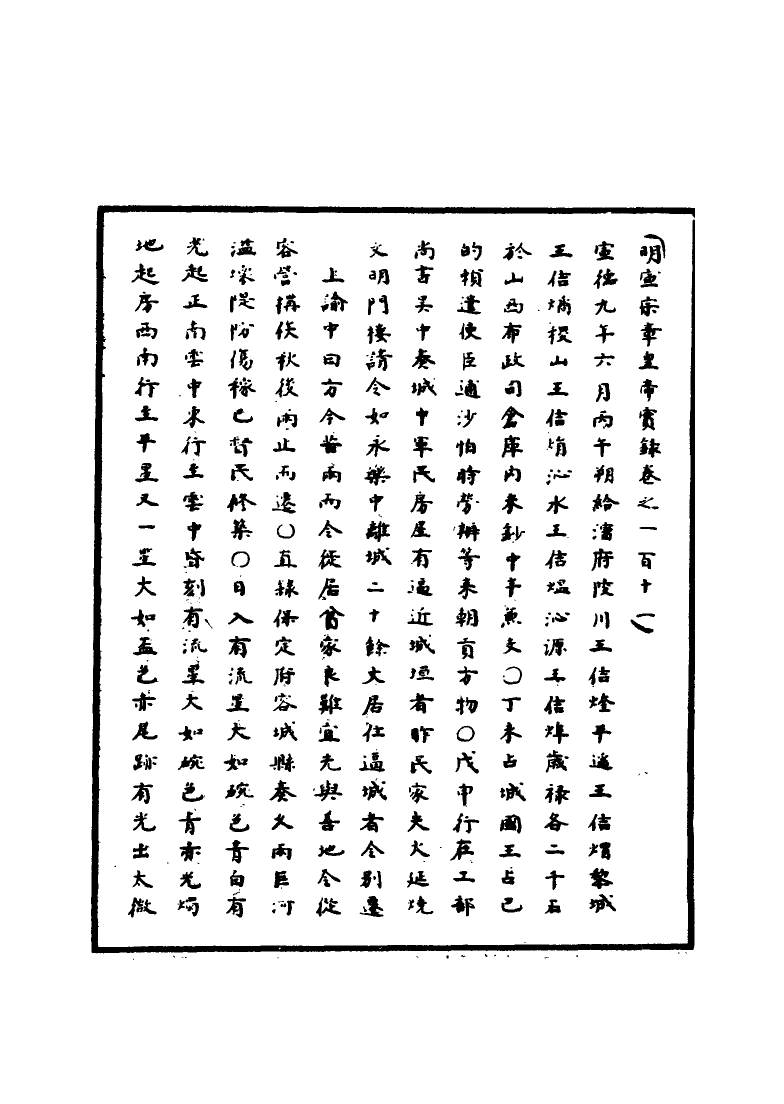 明宣宗章皇帝實錄卷之一百十一
宣德九年六月丙午朔給瀋府陵川王信㷂平遙王信焨黎城
王信𤊟稷山王信焴沁水王信熅沁源王信焞歲祿各二千石
於山西布政司倉庫內米鈔中半兼支○丁未占城國王占巴
的賴遣使臣逋沙怕時勞辦等來朝貢方物○戊申行在工部
尚書吳中奏城中軍民房屋有逼近城垣者昨民家失火延燒
文明門樓請令如永樂中離城二十餘丈居住逼城者令別遷
上諭中曰方今暑雨而令徙居貧家良難宜先與善地令從
容營構俟秋後雨止而遷○直隸保定府容城縣奏久雨巨河
溢壞隄防傷稼已督民修築○日入有流星大如碗色青白有
光起正南雲中東行至雲中昏刻有流星大如碗色青赤光燭
地起房西南行至平星又一星大如盃色赤尾跡有光出太微